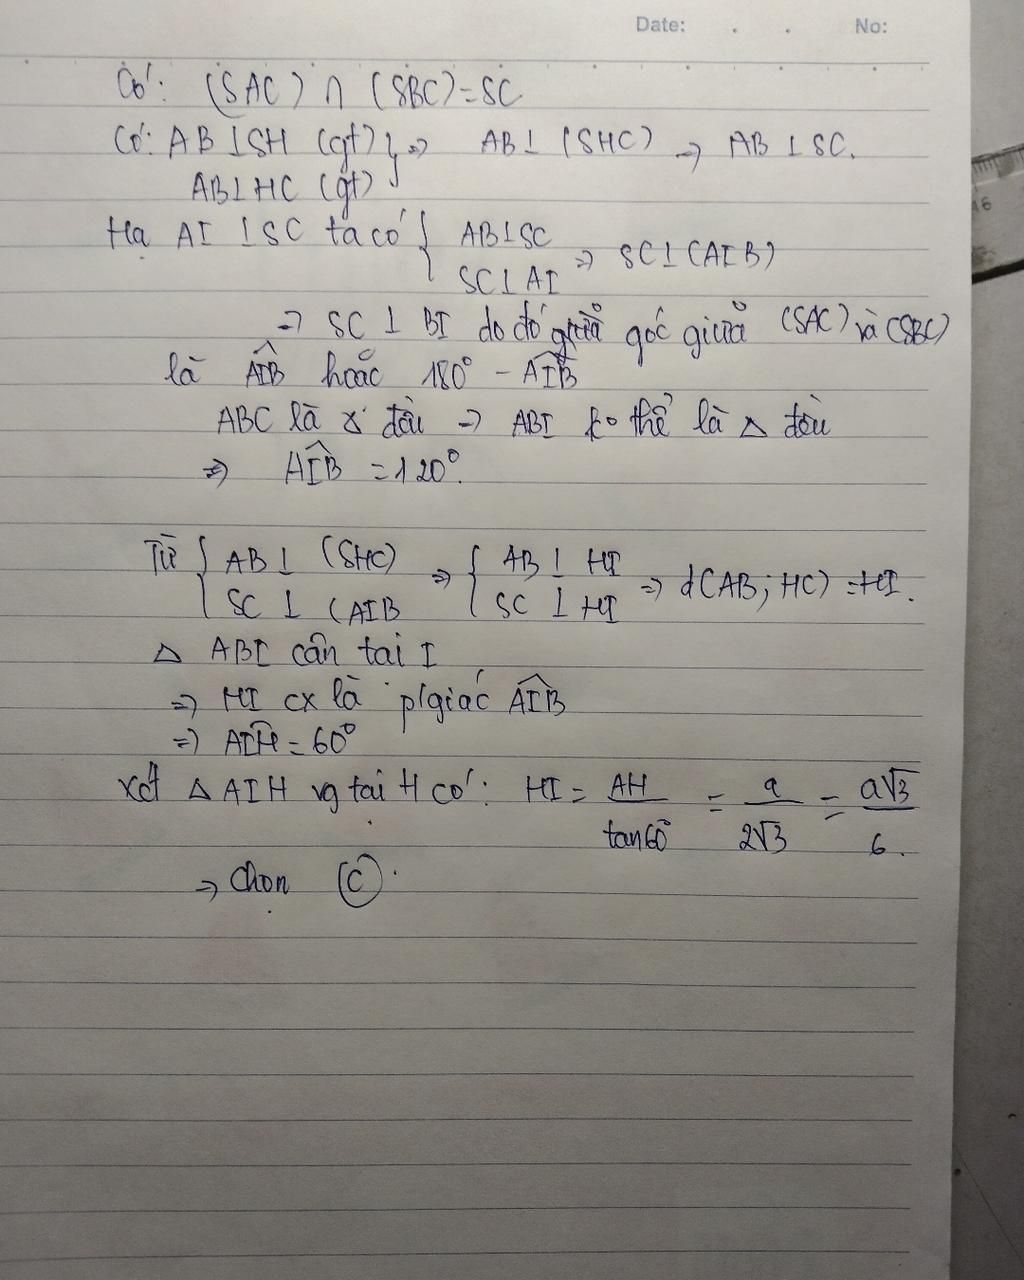 Date: . . No:
Có: (SAC) ∩ (SBC) = SC
Có: AB ⊥ SH (gt) } => AB ⊥ (SHC) => AB ⊥ SC.
AB ⊥ HC (gt)
Hạ AI ⊥ SC ta có { AB ⊥ SC
SC ⊥ AI => SC ⊥ (AIB)
=> SC ⊥ BI do đó góc giữa (SAC) và (SBC)
là AIB hoặc 180° - AIB
ABC là đều => ABI ko thể là Δ đều
=> AIB = 120°.
Từ { AB ⊥ (SHC) => { AB ⊥ HI => d(AB; HC) = HI.
SC ⊥ (AIB SC ⊥ HI
Δ ABI cân tại I
=> HI cx là p/giác AIB
=> AIH = 60°
xét Δ AIH vg tại H có: HI = AH/tan60° = a/2√3 = a√3/6.
=> Chọn (C).
16